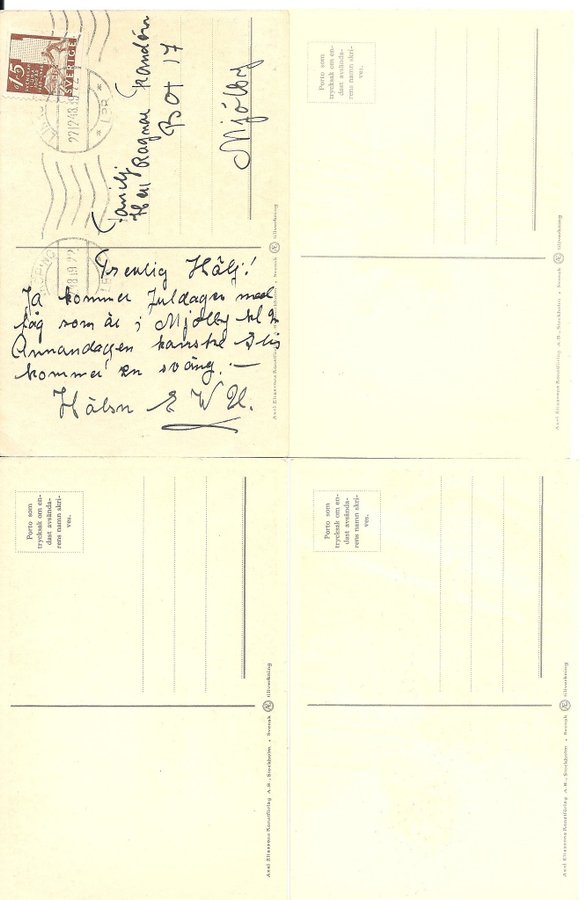 5
SVERIGE
22.12.48.19
Familj
Herr Ragnar
Box 17
Mjölby
Trevlig Hälg!
Ja kommer Juldagen med
tåg som är i Mjölby kl 2
Annandagen kanske
kommer en sväng. —
Hälsn E W U.
Axel Eliassons Konstförlag A.B., Stockholm • Svensk Æ tillverkning
Porto som
trycksak om en-
dast avsända-
rens namn skri-
ves.
Axel Eliassons Konstförlag A.B., Stockholm • Svensk Æ tillverkning
Porto som
trycksak om en-
dast avsända-
rens namn skri-
ves.
Axel Eliassons Konstförlag A.B., Stockholm • Svensk Æ tillverkning
Porto som
trycksak om en-
dast avsända-
rens namn skri-
ves.
Axel Eliassons Konstförlag A.B., Stockholm • Svensk Æ tillverkning